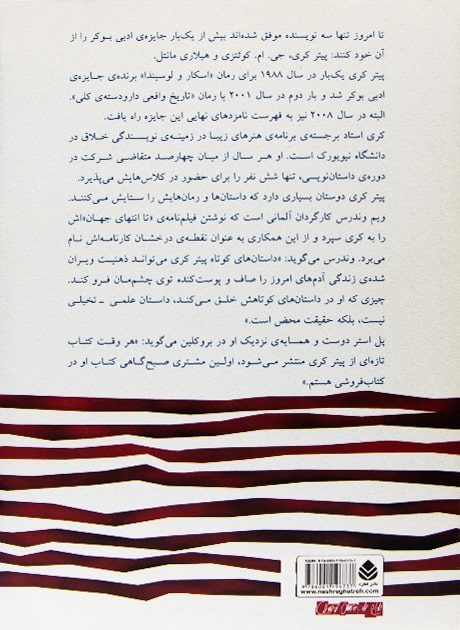 تا امروز تنها سه نویسنده موفق شده‌اند بیش از یک‌بار جایزه‌ی ادبی بوکر را از
آن خود کنند: پیتر کری، جی. ام. کوئتزی و هیلاری مانتل.
پیتر کری یک‌بار در سال ۱۹۸۸ برای رمان «اسکار و لوسیندا» برنده‌ی جایزه‌ی
ادبی بوکر شد و بار دوم در سال ۲۰۰۱ با رمان «تاریخ واقعی دارودسته‌ی کلی».
البته در سال ۲۰۰۸ نیز به فهرست نامزدهای نهایی این جایزه راه یافت.
کری استاد برجسته‌ی برنامه‌ی هنرهای زیبا در زمینه‌ی نویسندگی خلاق در
دانشگاه نیویورک است. او هر سال از میان چهارصد متقاضی شرکت در
دوره‌ی داستان‌نویسی، تنها شش نفر را برای حضور در کلاس‌هایش می‌پذیرد.
پیتر کری دوستان بسیاری دارد که داستان‌ها و رمان‌هایش را ستایش می‌کنند.
ویم وندرس کارگردان آلمانی است که نوشتن فیلم‌نامه‌ی «تا انتهای جهان»اش
را به کری سپرد و از این همکاری به عنوان نقطه‌ی درخشان کارنامه‌اش نام
می‌برد. وندرس می‌گوید: «داستان‌های کوتاه پیتر کری می‌تواند ذهنیت ویران
شده‌ی زندگی آدم‌های امروز را صاف و پوست‌کنده توی چشم‌مان فرو کند.
چیزی که او در داستان‌های کوتاهش خلق می‌کند، داستان علمی ـ تخیلی
نیست، بلکه حقیقت محض است.»
پل استر دوست و همسایه‌ی نزدیک او در بروکلین می‌گوید: «هر وقت کتاب
تازه‌ای از پیتر کری منتشر می‌شود، اولین مشتری صبح‌گاهی کتاب او در
کتاب‌فروشی هستم.»
نشر قطره
www.nashreghatreh.com